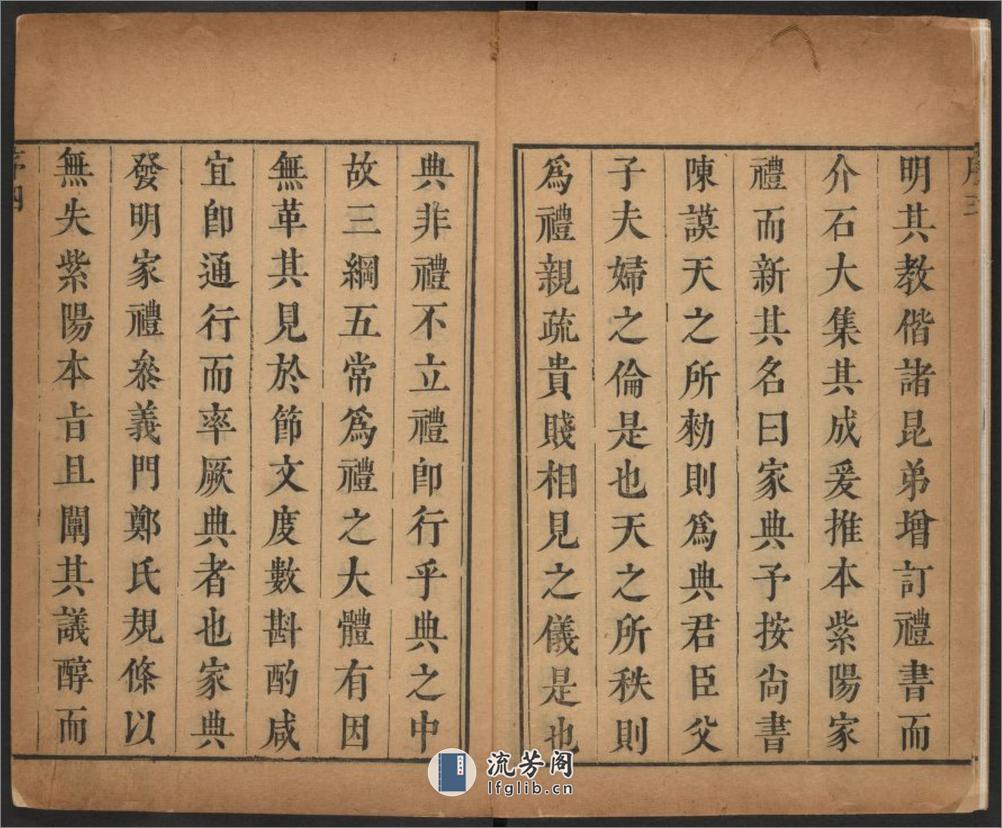 明其教偕諸昆弟增訂禮書而
介石大集其成爰推本紫陽家
禮而新其名曰家典予按尙書
陳謨天之所勑則爲典君臣父
子夫婦之倫是也天之所秩則
爲禮親疏貴賤相見之儀是也
典非禮不立禮卽行乎典之中
故三綱五常爲禮之大體有因
無革其見於節文度數斟酌咸
宜卽通行而率厥典者也家典
發明家禮叅義門鄭氏規條以
無失紫陽本旨且闡其議醇而
流芳阁
lfglib.cn